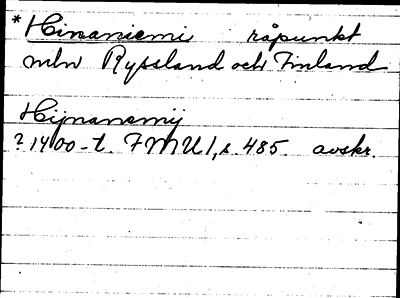 * Hinaniemi råpunkt
mln Ryssland och Finland
Hijnanemij
? 1400-t. FMU I, s. 485. avskr.